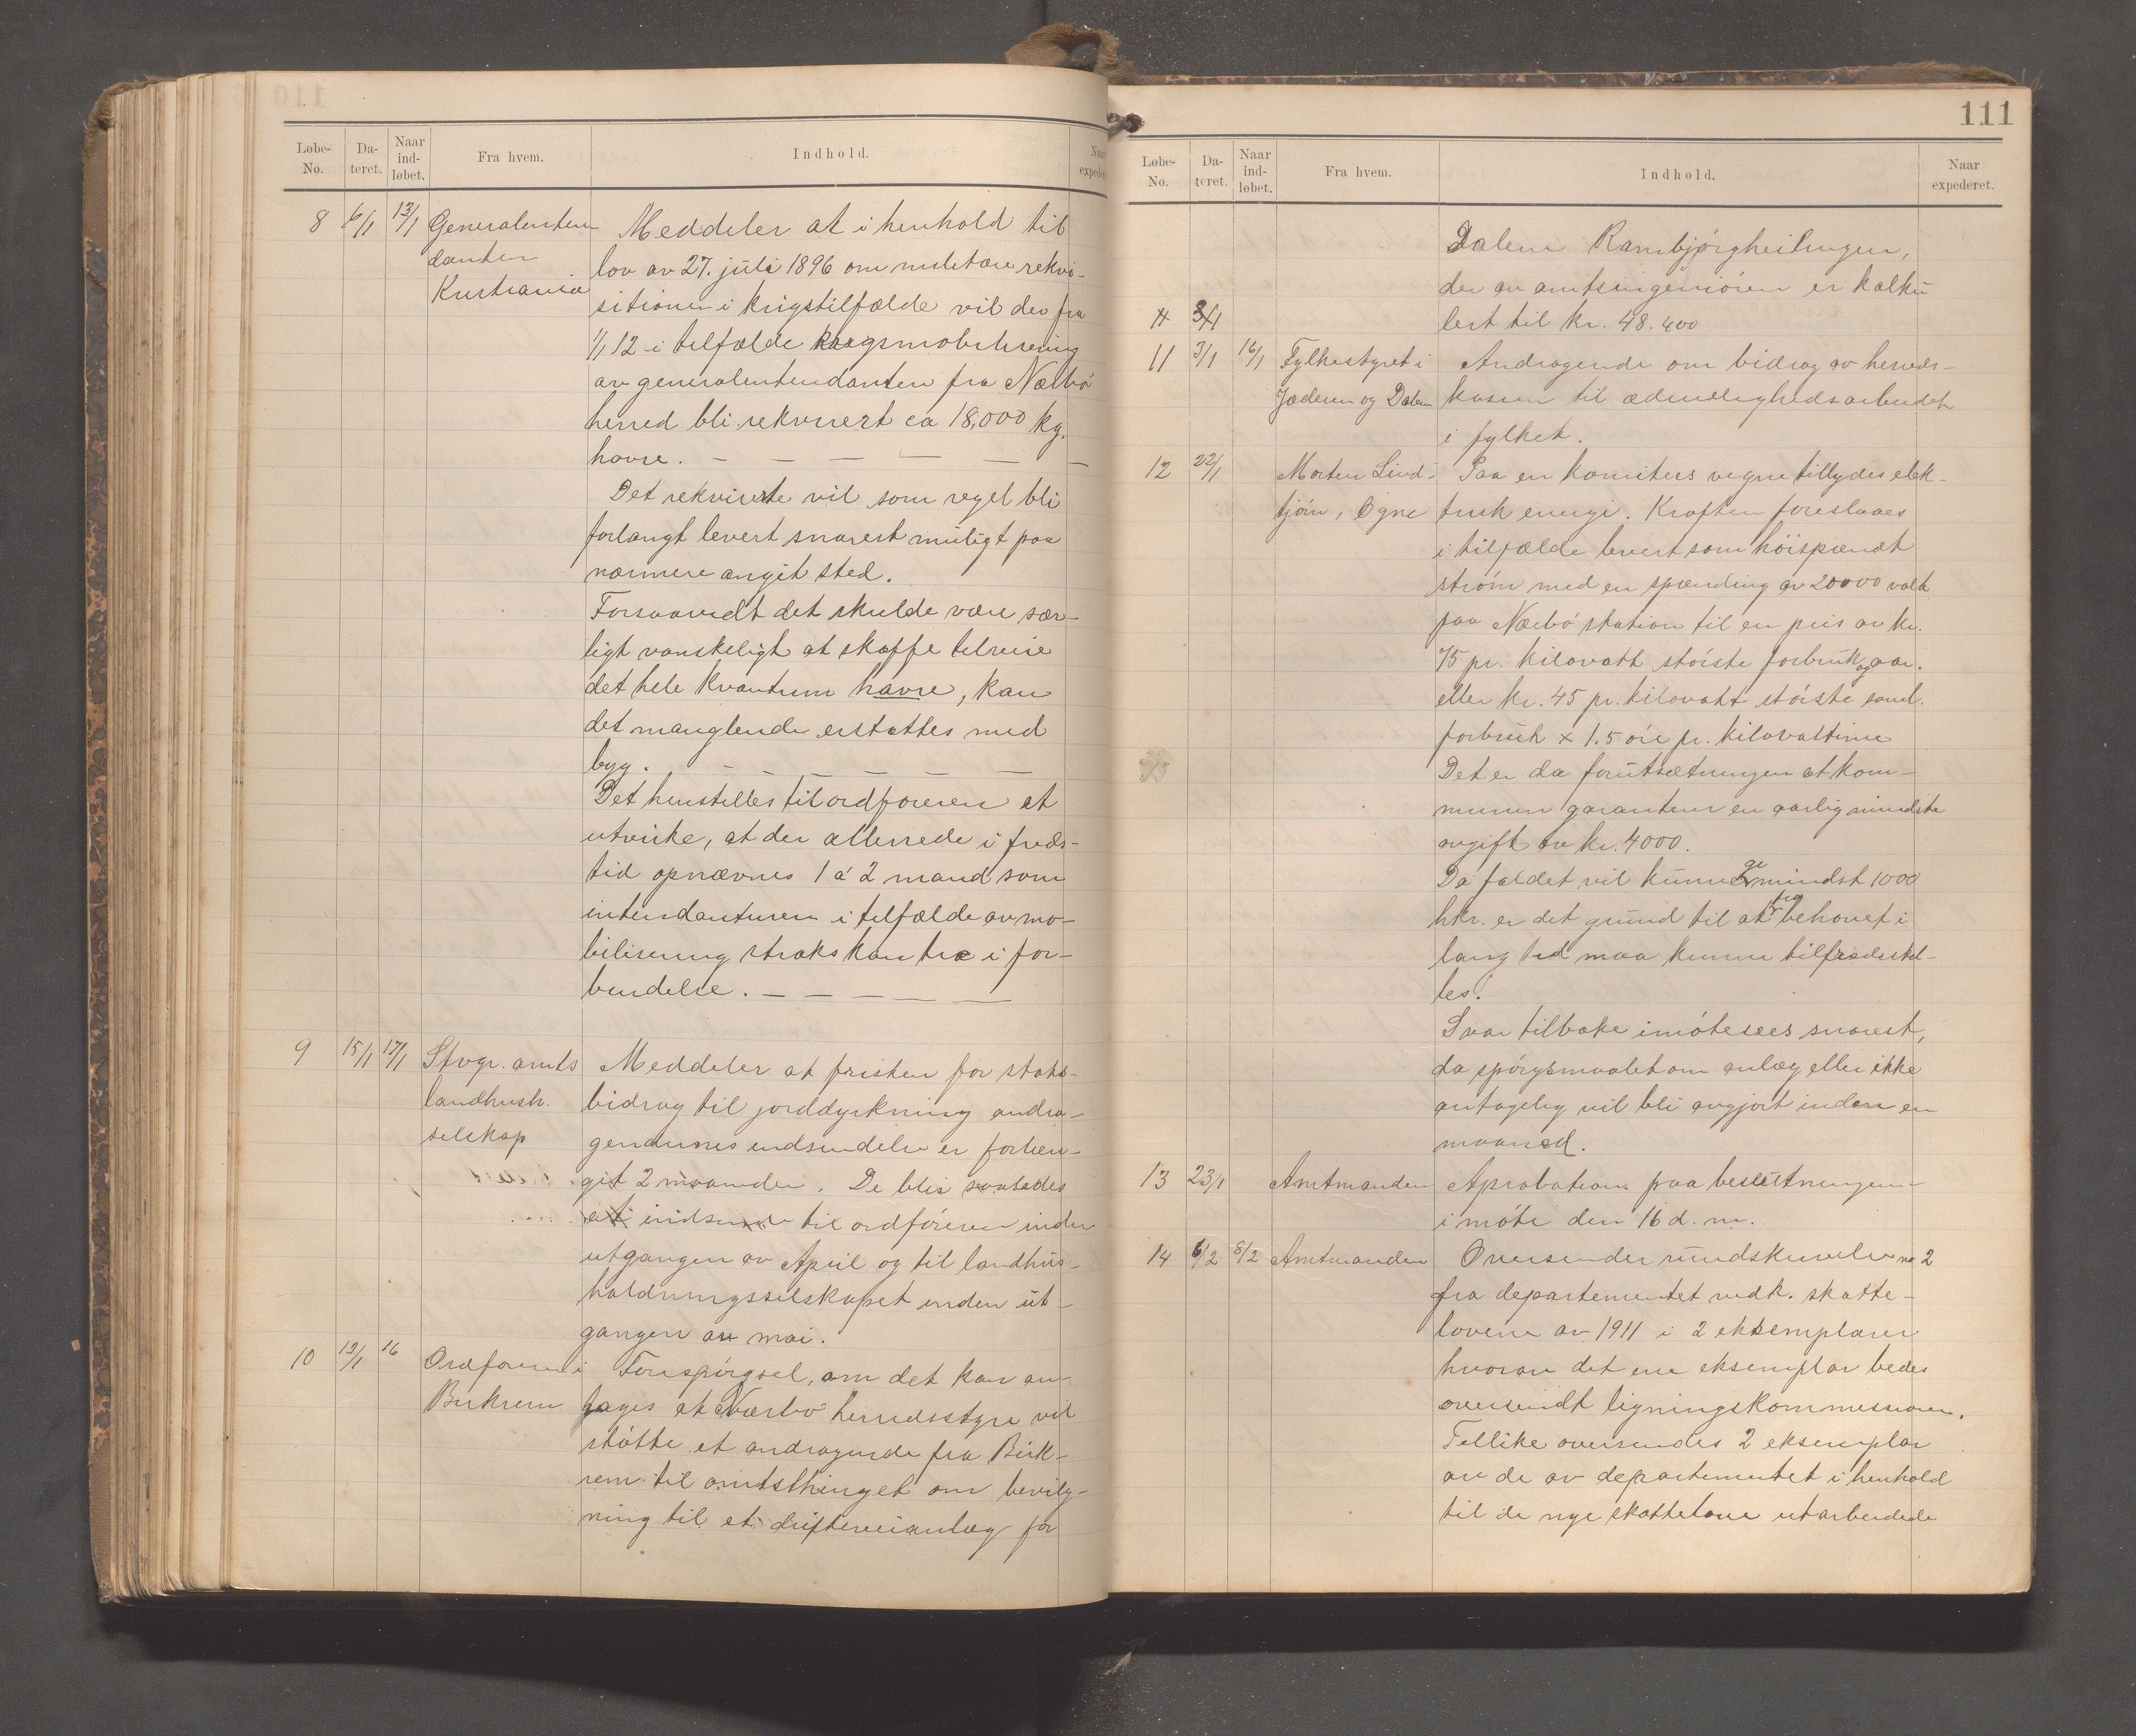 Løbe-No. Dateret. Naar indløbet. Fra hvem. Indhold. Naar expederet.
8 6/1 13/1 Generalinten-
danten
Kristiania
Meddeler at i henhold til
lov av 27. juli 1896 om militære rekvi-
sitioner i krigstilfælde vil der fra
1/1 12 i tilfælde krigsmobilisering
av generalintendanten fra Nærbø
herred bli rekvirert ca 18,000 kg.
havre. — — — — — —
Det rekvirerte vil som regel bli
forlangt levert snarest muligt paa
nærmere angit sted.
Forsaavidt det skulde være sær-
ligt vanskeligt at skaffe tilveie
det hele kvantum havre, kan
det manglende erstattes med
byg. — — — — — —
Det henstilles til ordføreren at
utvirke, at der allerede i freds-
tid opnævnes 1 á 2 mand som
intendanturen i tilfælde av mo-
bilisering straks kan træ i for-
bindelse. — — — — —
9 15/1 17/1 Stvgr. amts
landhush.
selskap
Meddeler at fristen for stats-
bidrag til jorddyrkning andra-
gendernes indsendelse er forlæn-
git 2 maaneder. De blir saaledes
at indsende til ordføreren inden
utgangen av April og til landhus-
holdningsselskapet inden ut-
gangen av mai.
10 12/1 16 Ordføreren i
Birkrem
Forespørgsel, om det kan an-
tages at Nærbø herredsstyre vil
støtte et andragende fra Birk-
rem til amtsthinget om bevilg-
ning til et drifteveianlæg for
111
Løbe-No. Dateret. Naar indløbet. Fra hvem. Indhold. Naar expederet.
Dalene Rambjørgheilingen,
der av amtsingeniøren er kalku
lert til kr. 48.400
11 3/1
11 3/1 16/1 Fylkestyret i
Jæderen og Dalene
Andragende om bidrag av herreds-
kassen til ædruelighedsarbeidet
i fylket.
12 22/1 Morten Lind-
tjörn, Ogne
Paa en komitees vegne tilbydes elek-
trisk energi. Kraften foreslaaes
i tilfælde levert som høispændt
strøm med en spænding av 20000 volt
paa Nærbø station til en pris av kr.
75 pr. kilovatt største forbruk og aar.
eller kr. 45 pr. kilovatt største saml.
forbruk + 1.5 øre pr. kilovattime
Det er da forutsætningen at kom-
munen garanterer en aarlig mindste
avgift av kr. 4000.
Da faldet vil kunne gi mindst 1000
hkr. er det grund til at tro behovet i
lang tid maa kunne tilfredsstil-
les.
Svar tilbake imøtesees snarest,
da spørgsmaalet om anlæg eller ikke
antagelig vil bli avgjort inden en
maaned.
13 23/1 Amtmanden
Aprobation paa beslutningen
i møte den 16 d. m.
14 6/2 8/2 Amtmanden
Oversender rundskrivelse no 2
fra departementet vedk. skatte-
lovene av 1911 i 2 eksemplarer
hvorav det ene eksemplar bedes
oversendt ligningskommissionen.
Tillike oversendes 2 eksemplar
av de av departementet i henhold
til de nye skattelove utarbeidede